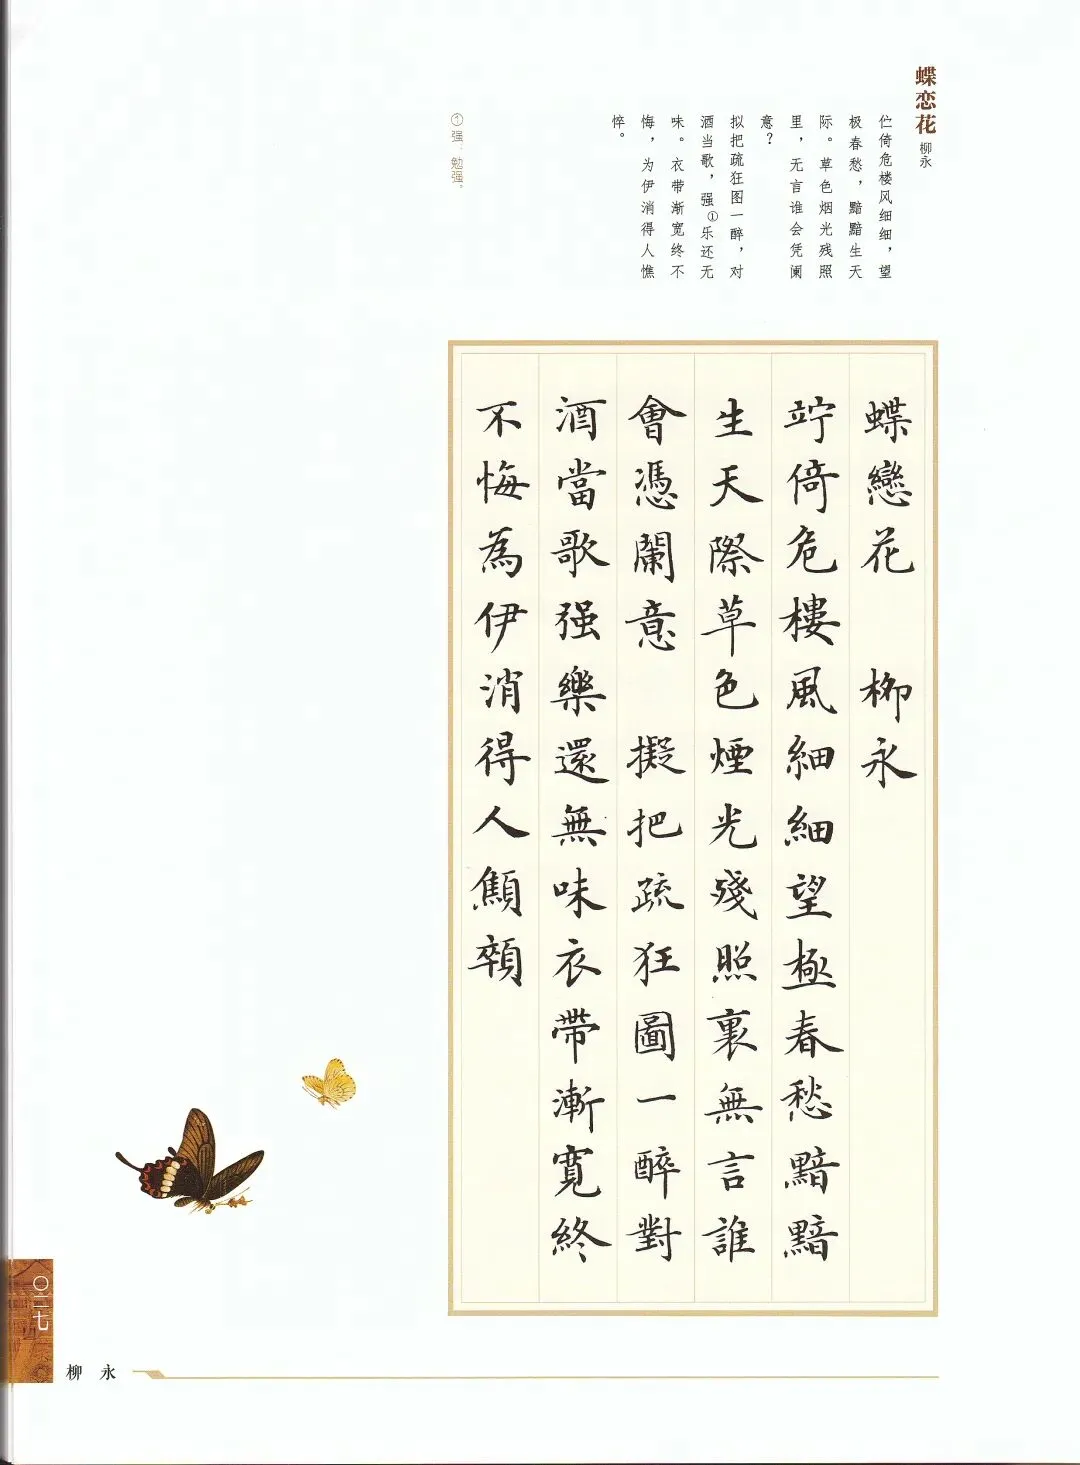 蝶恋花 柳永
伫倚危楼风细细，望
极春愁，黯黯生天
际。草色烟光残照
里，无言谁会凭阑
意？
拟把疏狂图一醉，对
酒当歌，强①乐还无
味。衣带渐宽终不
悔，为伊消得人憔
悴。
①强：勉强。
蝶戀花 柳永
竚倚危樓風細細望極春愁黯黯
生天際草色煙光殘照裏無言誰
會憑闌意 擬把疏狂圖一醉對
酒當歌强樂還無味衣帶漸寬終
不悔為伊消得人顦顇
〇二七
柳永